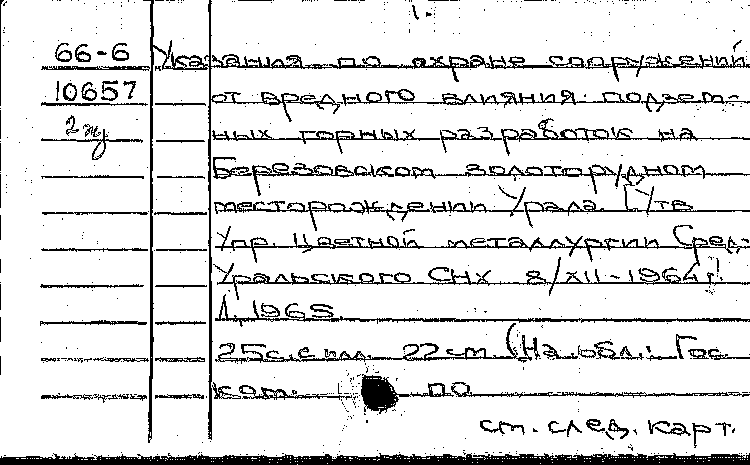 1.
66-6 Указания по охране сооружений
10657 от вредного влияния подзем-
2 эк ных горных разработок на
Березовском золоторудном
месторождении Урала [Утв
Упр. Цветной металлургии Сред-
Уральского СНХ 8/XII-1964г.]
Л. 1965.
25с. с илл. 22 см. (На обл.: Гос
ком. по
см. след. карт.